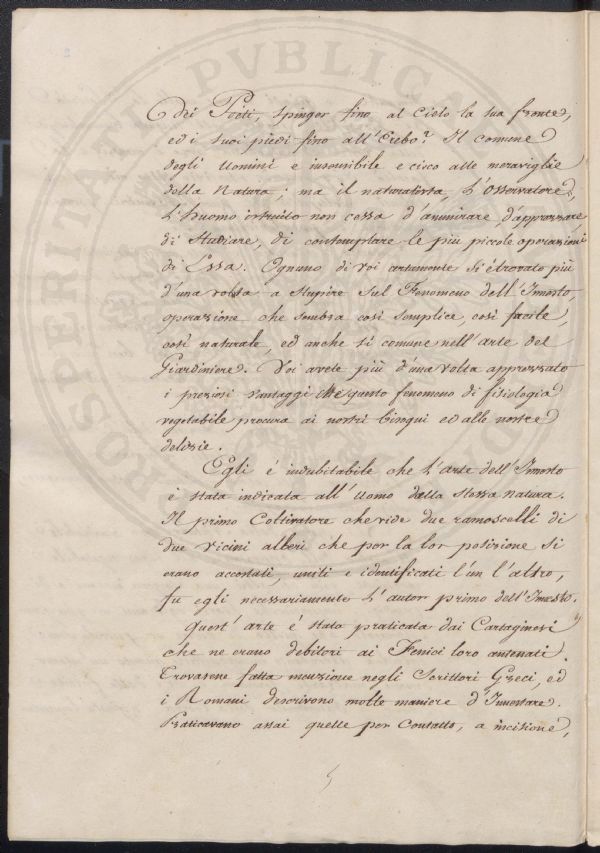 dei Poëti, spinger fino al Cielo la sua fronte,
ed i suoi piedi fino all'Erebo? Il comune
degli Uomini e insensibile e cieco alle meraviglie
della Natura; ma il naturalista, L'Osservatore,
L'huomo istruito non cessa d'ammirare, d'apprezzare
di Studiare, di contemplare le più piccole operazioni
di Essa. Ognuno di voi certamente si é trovato più
d'una volta a stupire sul Fenomeno dell'Innesto,
operazione che sembra cosi semplice, cosi facile,
cosi naturale, ed anche si comune nell'arte del
Giardiniere. Voi avete più d'una volta apprezzato
i preziosi vantaggi che questo fenomeno di fisiologia
vegetabile procura ai nostri bisogni ed alle nostre
delizie.
Egli é indubitabile che L'arte dell'Innesto
è stata indicata all'Uomo dalla stessa natura.
Il primo Coltivatore che vide due ramoscelli di
due vicini alberi che per la lor posizione si
erano accostati, uniti e identificati l'un l'altro,
fu egli necessariamente L'autor primo dell'Innesto.
Quest'arte é stata praticata dai Cartaginesi
che ne erano debitori ai Fenici loro antenati.
Trovasene fatta menzione negli Scrittori Greci, ed
i Romani descrivono molte maniere d'Innestare.
Praticavano assai quelle per Contatto, a incisione,
PROSPERITATI PVBLICAE